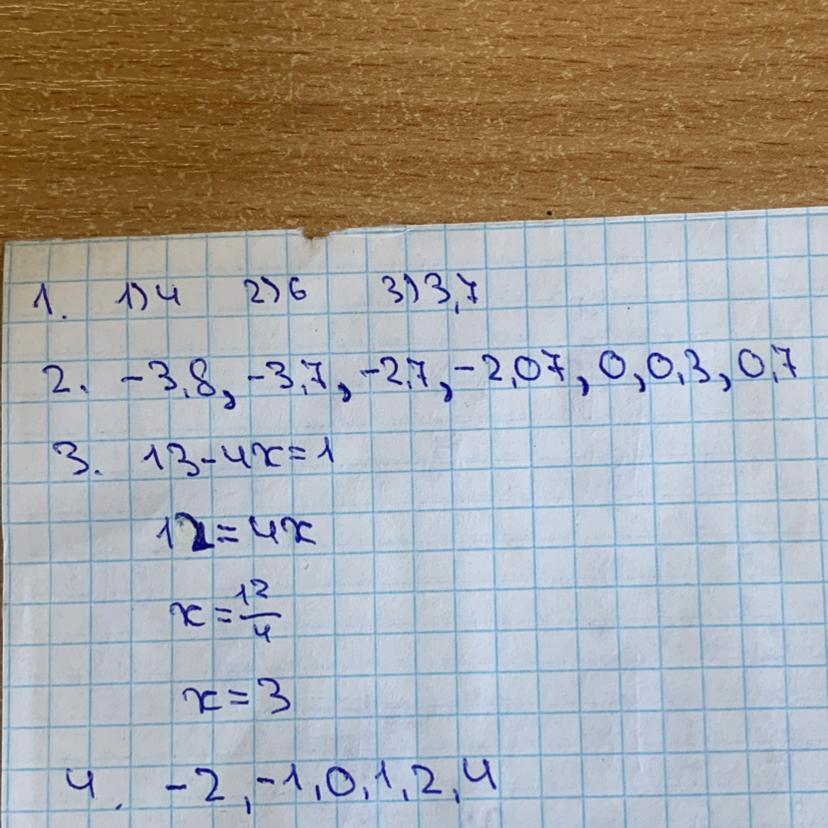 1. 1) 4 2) 6 3) 3,7
2. -3,8, -3,7, -2,7, -2,07, 0, 0,3, 0,7
3. 13-4x=1
12=4x
x=12/4
x=3
4. -2, -1, 0, 1, 2, 4